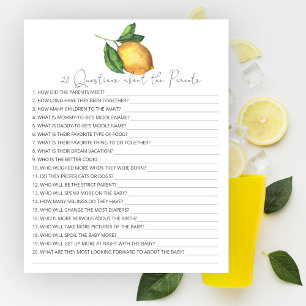 20 Questions about the Parents
1. HOW DID THE PARENTS MEET?
2. HOW LONG HAVE THEY BEEN TOGETHER?
3. HOW MANY CHILDREN TO THE WANT?
4. WHAT IS MOMMY-TO-BE'S MIDDLE NAME?
5. WHAT IS DADDY-TO-BE'S MIDDLE NAME?
6. WHAT IS THEIR FAVORITE TYPE OF FOOD?
7. WHAT IS THEIR FAVORITE THING TO DO TOGETHER?
8. WHAT IS THEIR DREAM VACATION?
9. WHO IS THE BETTER COOK?
10. WHO WEIGHED MORE WHEN THEY WERE BORN?
11. DO THEY PREFER CATS OR DOGS?
12. WHO WILL BE THE STRICT PARENT?
13. WHO WILL SPEND MORE ON THE BABY?
14. HOW MANY SIBLINGS DO THEY HAVE?
15. WHO WILL CHANGE THE MOST DIAPERS?
16. WHO IS MORE NERVOUS ABOUT THE BIRTH?
17. WHO WILL TAKE MORE PICTURES OF THE BABY?
18. WHO WILL SPOIL THE BABY MORE?
19. WHO WILL GET UP MORE AT NIGHT WITH THE BABY?
20. WHAT ARE THEY MOST LOOKING FORWARD TO ABOUT THE BABY?